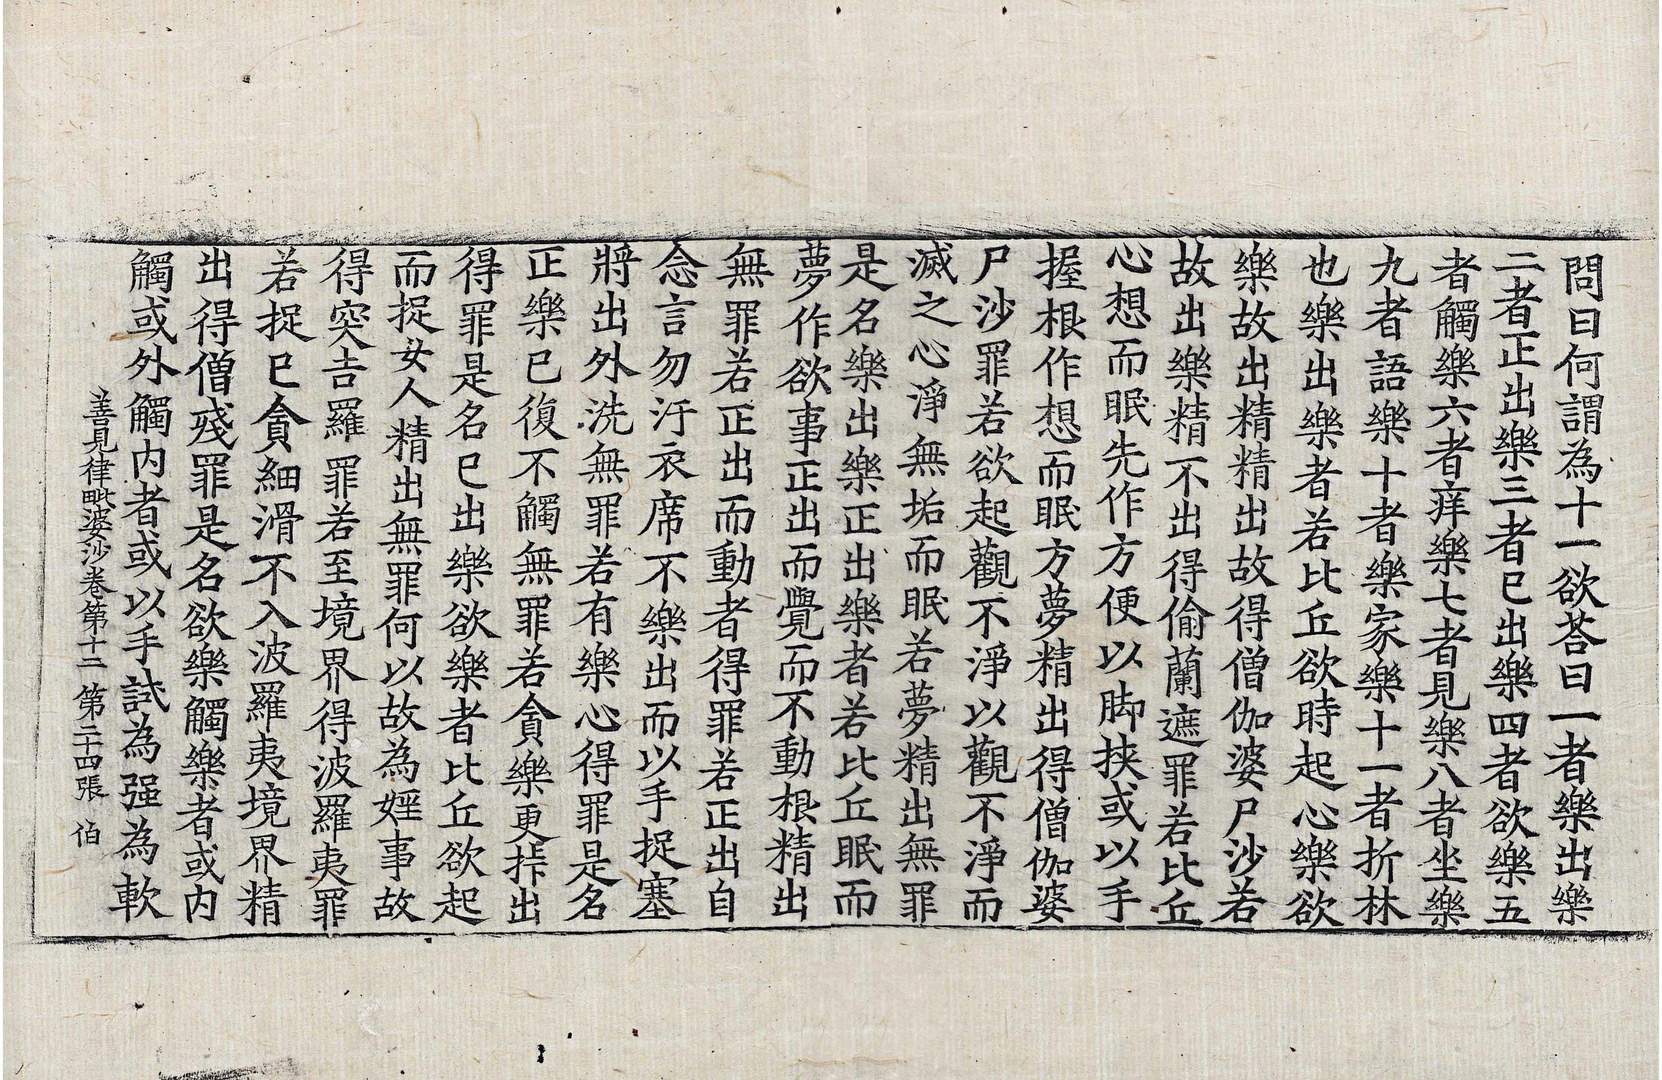 問曰何謂為十一欲荅曰一者樂出樂
二者正出樂三者已出樂四者欲樂五
者觸樂六者痒樂七者見樂八者坐樂
九者語樂十者樂家樂十一者折林
也樂出樂者若比丘欲時起心樂欲
樂故出精精出故得僧伽婆尸沙若
故出樂精不出得偷蘭遮罪若比丘
心想而眠先作方便以脚挾或以手
握根作想而眠方夢精出得僧伽婆
尸沙罪若欲起觀不淨以觀不淨而
滅之心淨無垢而眠若夢精出無罪
是名樂出樂正出樂者若比丘眠而
夢作欲事正出而覺而不動根精出
無罪若正出而動者得罪若正出自
念言勿汙衣席不樂出而以手捉塞
將出外洗無罪若有樂心得罪是名
正樂已復不觸無罪若貪樂更挊出
得罪是名已出樂欲樂者比丘欲起
而捉女人精出無罪何以故為婬事故
得突吉羅罪若至境界得波羅夷罪
若捉已貪細滑不入波羅夷境界精
出得僧殘罪是名欲樂觸樂者或內
觸或外觸內者或以手試為强為軟
善見律毗婆沙卷第十二 第三十四張 伯